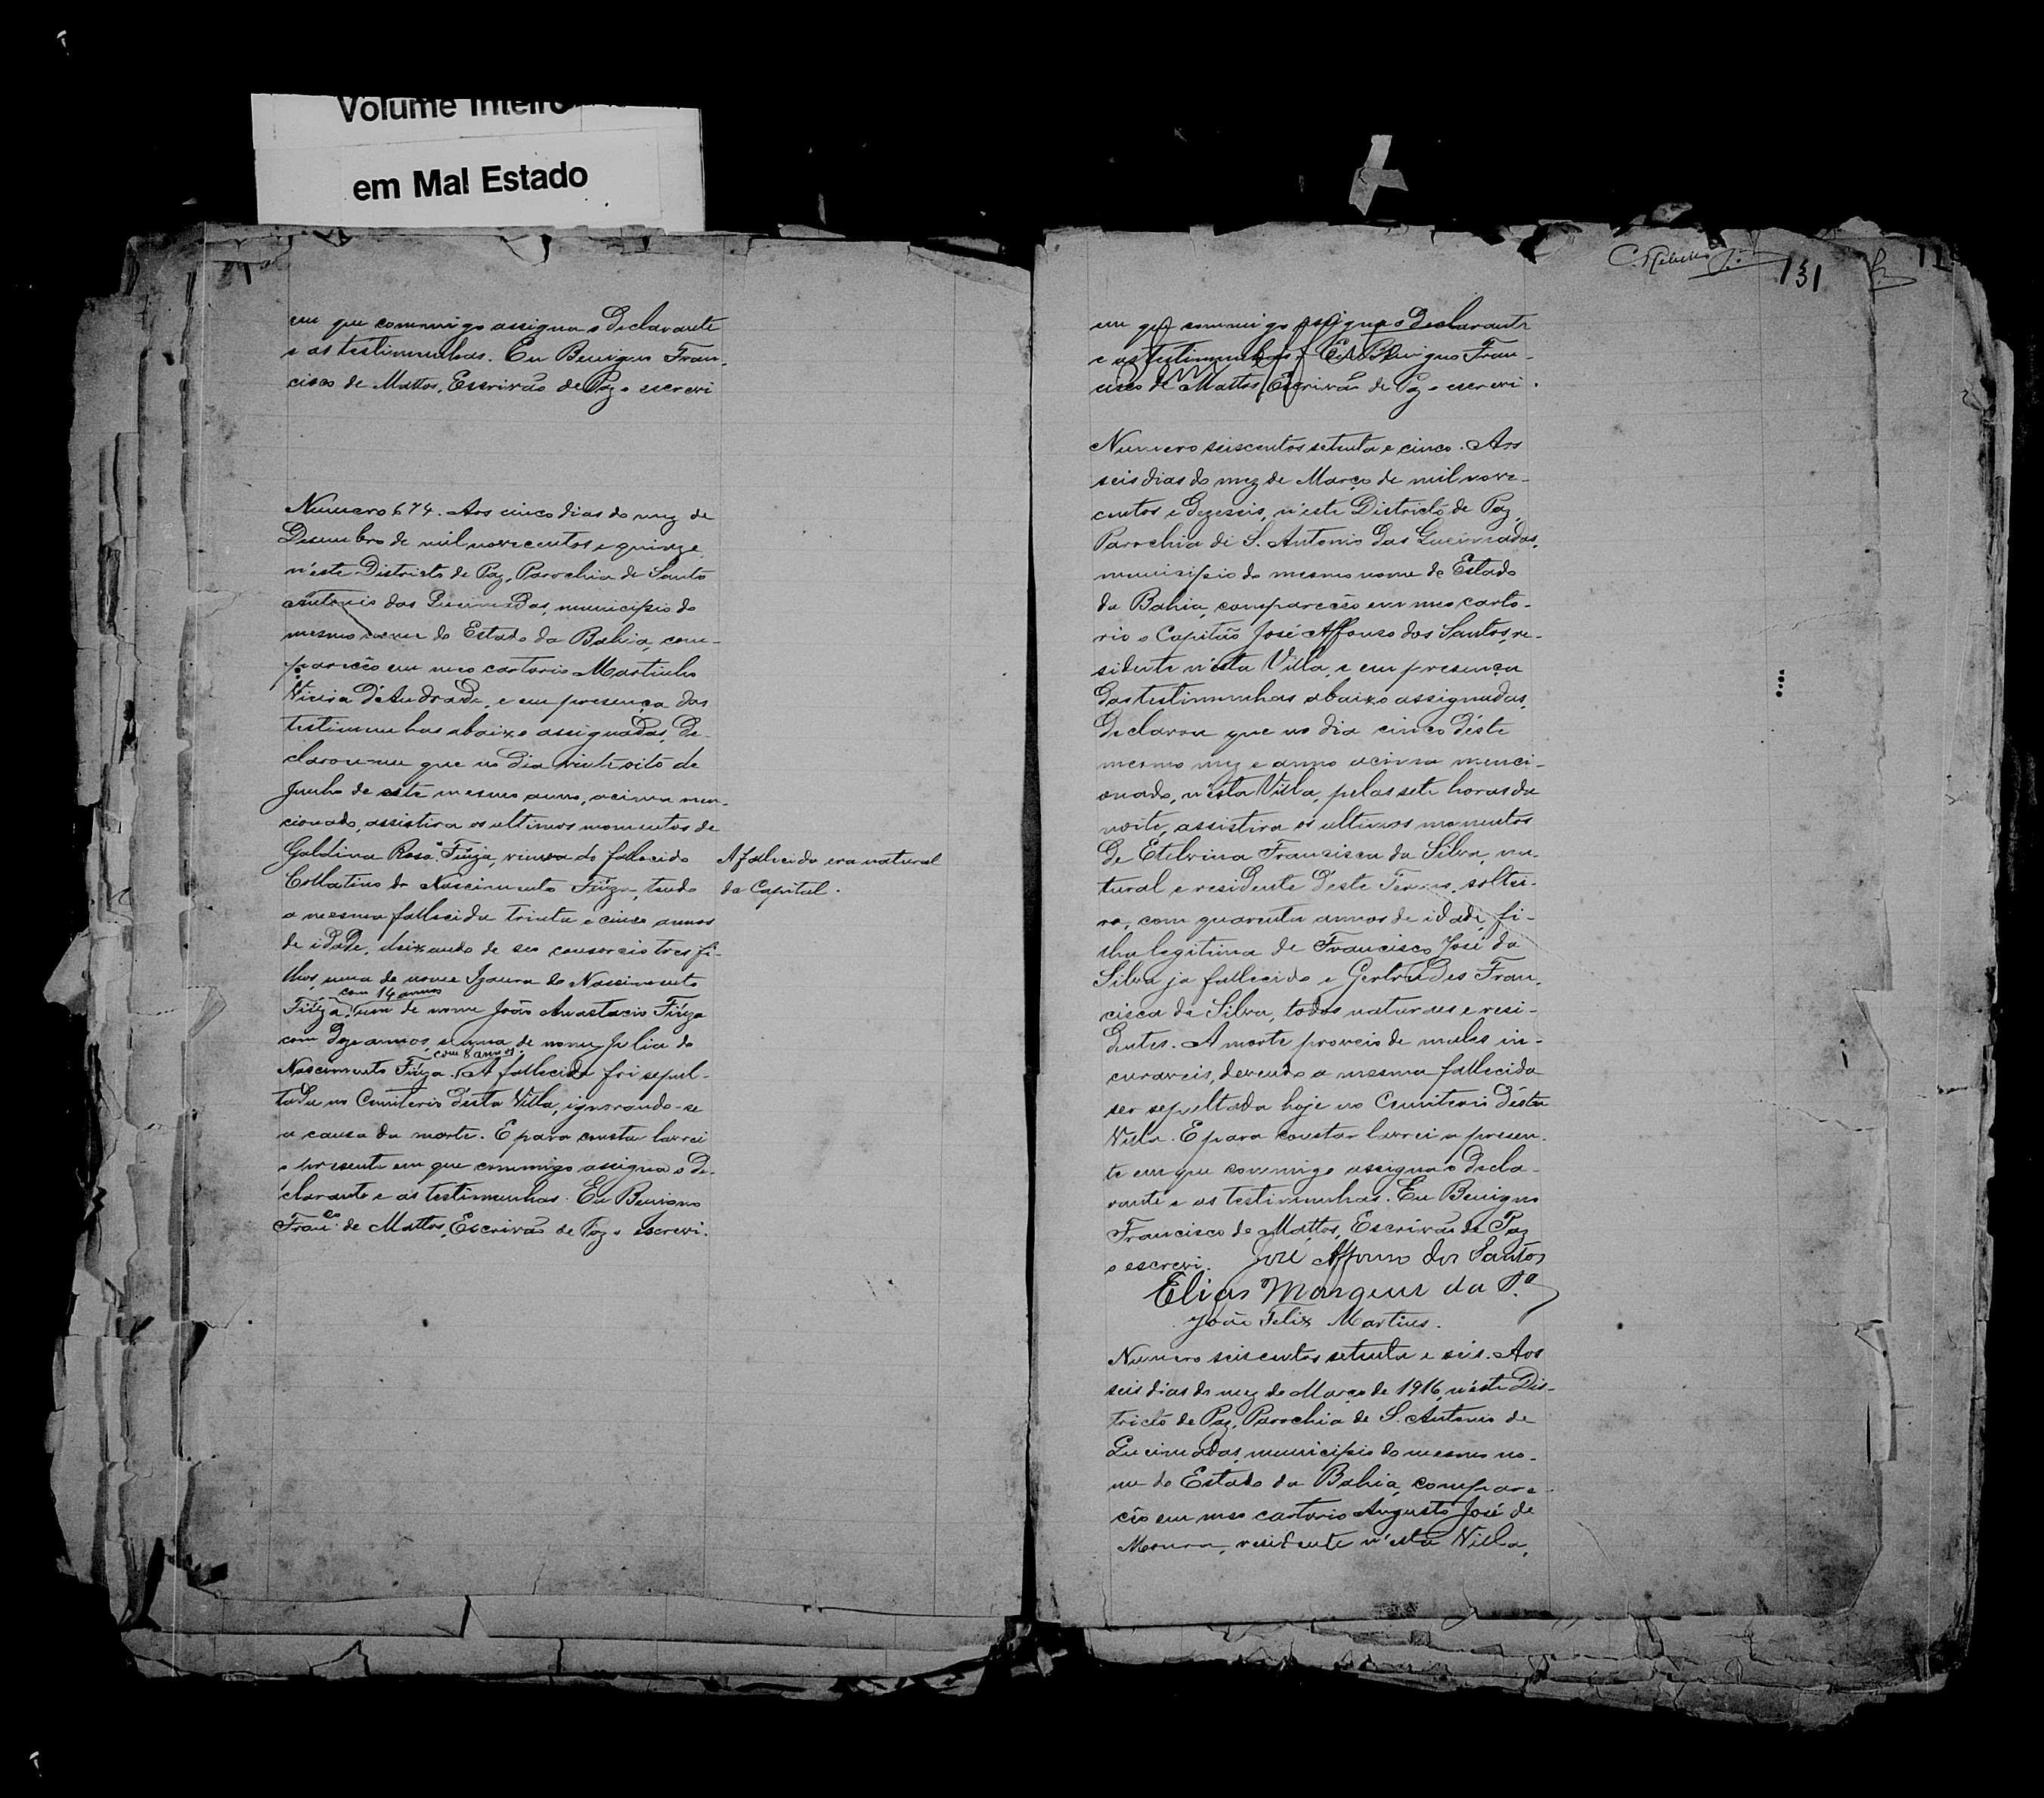 Volume Inteiro
em Mal Estado
em que commigo assigna o declarante
e as testimunhas. Eu Benigno Fran-
cisco de Mattos, Escrivão de Paz o escrevi
Numero 674. Aos cinco dias do mez de
Desembro de mil novecentos e quinze,
n'este Districto de Paz, Parochia de Santo
Antonio das Queimadas, municipio do
mesmo nome do Estado da Bahia, com-
pareceo em meo cartorio Martinho
Vieira d'Andrade, e em presença das
testimunhas abaixo assignadas, de-
clarou-me que no dia vinte oito de
Junho de este mesmo anno, acima men-
cionado, assistira os ultimos momentos de
Galdina Rosa Fiúza, viuva do fallecido
Collatino do Nascimento Fiúza, tendo
a mesma fallecida trinta e cinco annos
de idade, deixando de seo consorcio tres fi-
lhos, uma de nome Izaura do Nassimento
com 14 annos
Fiúza, um de nome João Anastacio Fiúza
com doze annos, e uma de nome Julia do
com 8 annos.
Nascimento Fiúza. A fallecida foi sepul-
tada no Cemiterio d'esta Villa, ignorando-se
a causa da morte. E para constar lavrei
o presente em que commigo assigna o de-
clarante e as testimunhas. Eu Benigno
Fran.co de Mattos, Escrivão de Paz o escrevi.
A fallecida era natural
da Capital.
131
em que commigo assigna o declarante
e as testimunhas. Eu Benigno Fran-
cisco de Mattos, Escrivão de Paz o escrevi.
Numero seiscentos setenta e cinco. Aos
seis dias do mez de Março de mil nove-
centos e dezesseis, n'este Districto de Paz,
Parochia de S. Antonio das Queimadas,
municipio do mesmo nome do Estado
da Bahia, compareceo em meo carto-
rio o Capitão José Affonso dos Santos, re-
sidente n'esta Villa, e em presença
das testimunhas abaixo assignadas,
declarou que no dia cinco d'este
mesmo mez e anno acima menci-
onado, n'esta Villa, pelas sete horas da
noite, assistira os ultimos momentos
de Etelvina Francisca da Silva, na-
tural e residente d'este Termo, soltei-
ra, com quarenta annos de idade, fi-
lha legitima de Francisco José da
Silva ja fallecido e Gertrudes Fran-
cisca da Silva, todos naturaes e resi-
dentes. A morte proveio de males in-
curaveis, devendo a mesma fallecida
ser sepultada hoje no Cemiterio d'esta
Villa. E para constar lavrei o presen-
te em que commigo assigna o decla-
rante e as testimunhas. Eu Benigno
Francisco de Mattos, Escrivão de Paz
o escrevi. José Affonso dos Santos
Elias da S.a
João Felix Martins.
Numero seiscentos setenta e seis. Aos
seis dias do mez de Março de 1916, n'este Dis-
tricto de Paz, Parochia de S. Antonio de
Queimadas, municipio do mesmo no-
me do Estado da Bahia, compare-
ceo em meo cartorio Augusto José de
Moura, residente n'esta Villa,